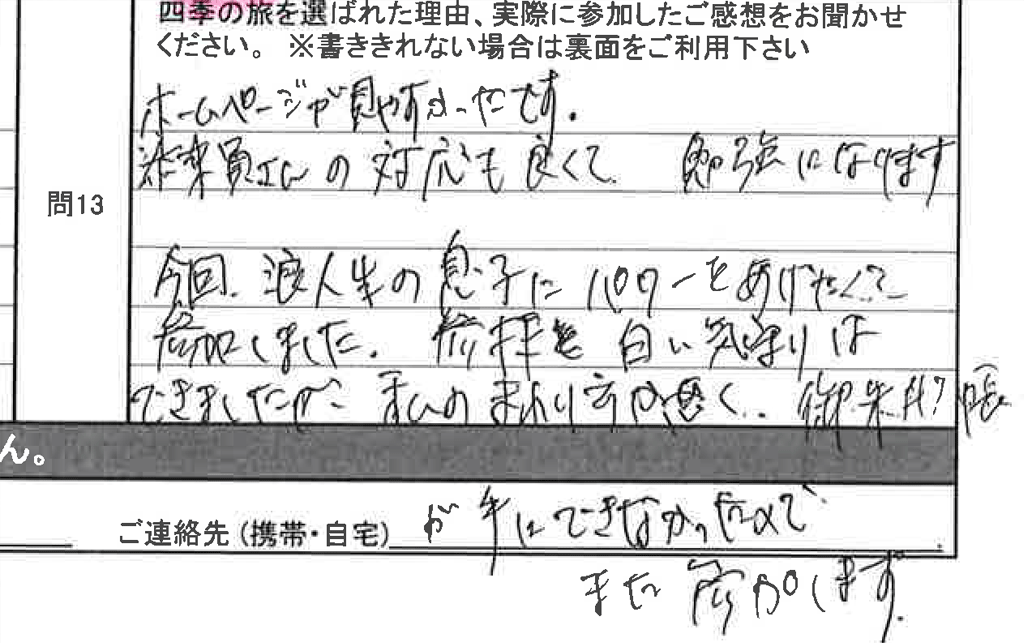 四季の旅を選ばれた理由、実際に参加したご感想をお聞かせ
ください。 ※書ききれない場合は裏面をご利用下さい
ホームページが見やすかったです。
添乗員さんの対応も良くて 勉強になります
問13
今回、浪人生の息子にパワーをあげたくて
参加しました。 参拝と白い気守りは
できましたが、私のまわり方が悪く、御朱印帳
ん。
ご連絡先 (携帯・自宅)
が手にできなかったので
また参加します。